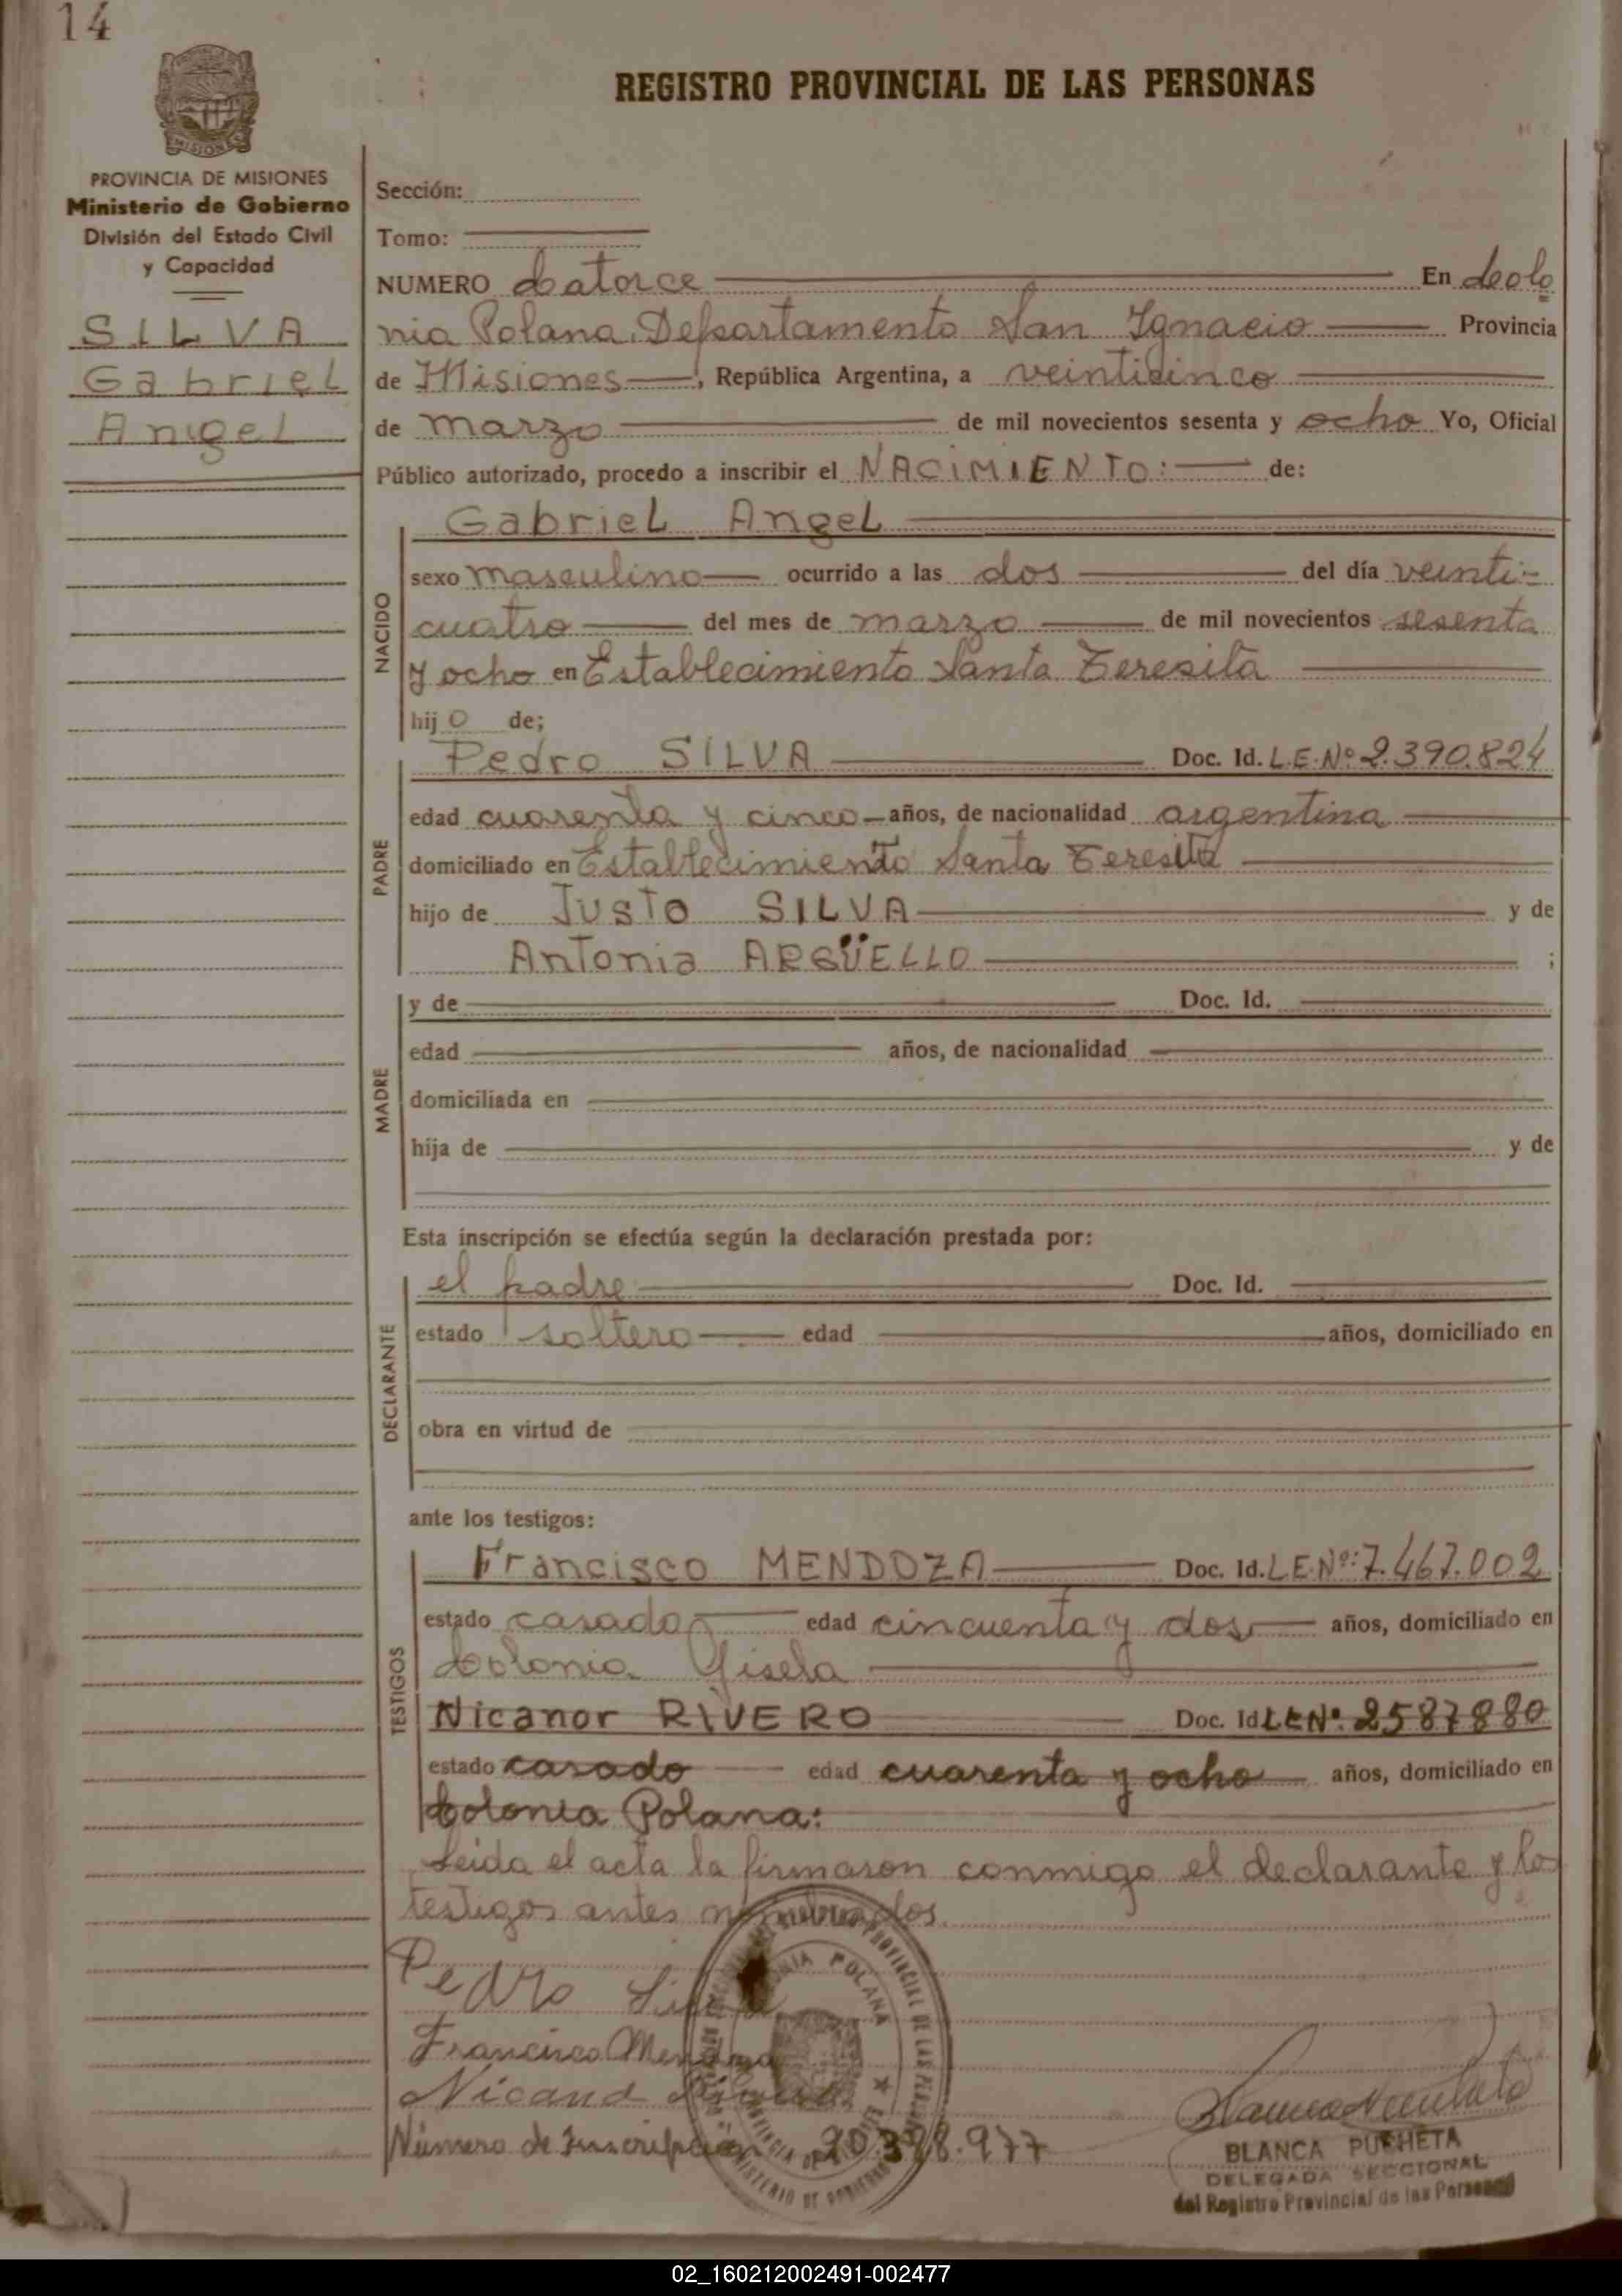 14
PROVINCIA DE MISIONES
Ministerio de Gobierno
División del Estado Civil
y Capacidad
SILVA
Gabriel
Angel
REGISTRO PROVINCIAL DE LAS PERSONAS
Sección:
Tomo:
NUMERO Catorce En Colo
nia Polana. Departamento San Ignacio Provincia
de Misiones, República Argentina, a veinticinco
de marzo de mil novecientos sesenta y ocho Yo, Oficial
Público autorizado, procedo a inscribir el NACIMIENTO: de:
NACIDO
Gabriel Angel
sexo masculino ocurrido a las dos del día veinti-
cuatro del mes de marzo de mil novecientos sesenta
y ocho en Establecimiento Santa Teresita
hijo de;
PADRE
Pedro SILVA Doc. Id. L.E.Nº 2.390.824
edad cuarenta y cinco años, de nacionalidad argentina
domiciliado en Establecimiento Santa Teresita
hijo de Justo SILVA y de
Antonia ARGÜELLO ;
MADRE
y de Doc. Id.
edad años, de nacionalidad
domiciliada en
hija de y de
Esta inscripción se efectúa según la declaración prestada por:
DECLARANTE
el padre Doc. Id.
estado soltero edad años, domiciliado en
obra en virtud de
ante los testigos:
TESTIGOS
Francisco MENDOZA Doc. Id. L.E.Nº: 7.467.002
estado casado edad cincuenta y dos años, domiciliado en
Colonia Gisela
Nicanor RIVERO Doc. Id L.E.Nº. 2587880
estado casado edad cuarenta y ocho años, domiciliado en
Colonia Polana:
Leida el acta la firmaron conmigo el declarante y los
testigos antes nombrados.
Pedro Silva
Francisco Mendoza
Nicano
Número de Inscripción 20.398.977
BLANCA PUCHETA
DELEGADA SECCIONAL
del Registro Provincial de las Personas
02_160212002491-002477